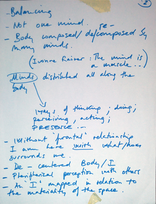 ②
- Balancing
- Not one mind.
- Body composed/decomposed by
many minds.
(Ivonne Rainer: The mind is
a muscle...)
Minds distributed all along the
body
types of thinking; doing;
perceiving, acting;
PRESENCE...
- Without frontal relationship
I am here with what/those
surrounds me.
- De-centered Body/I
- Peripherical perception with others
In 'I' mapped in relation to
the materiality of the space.